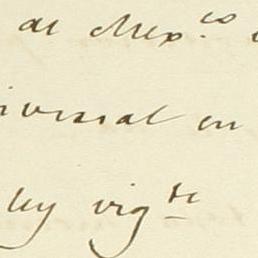 de Mexco
iversal en
ley vigte